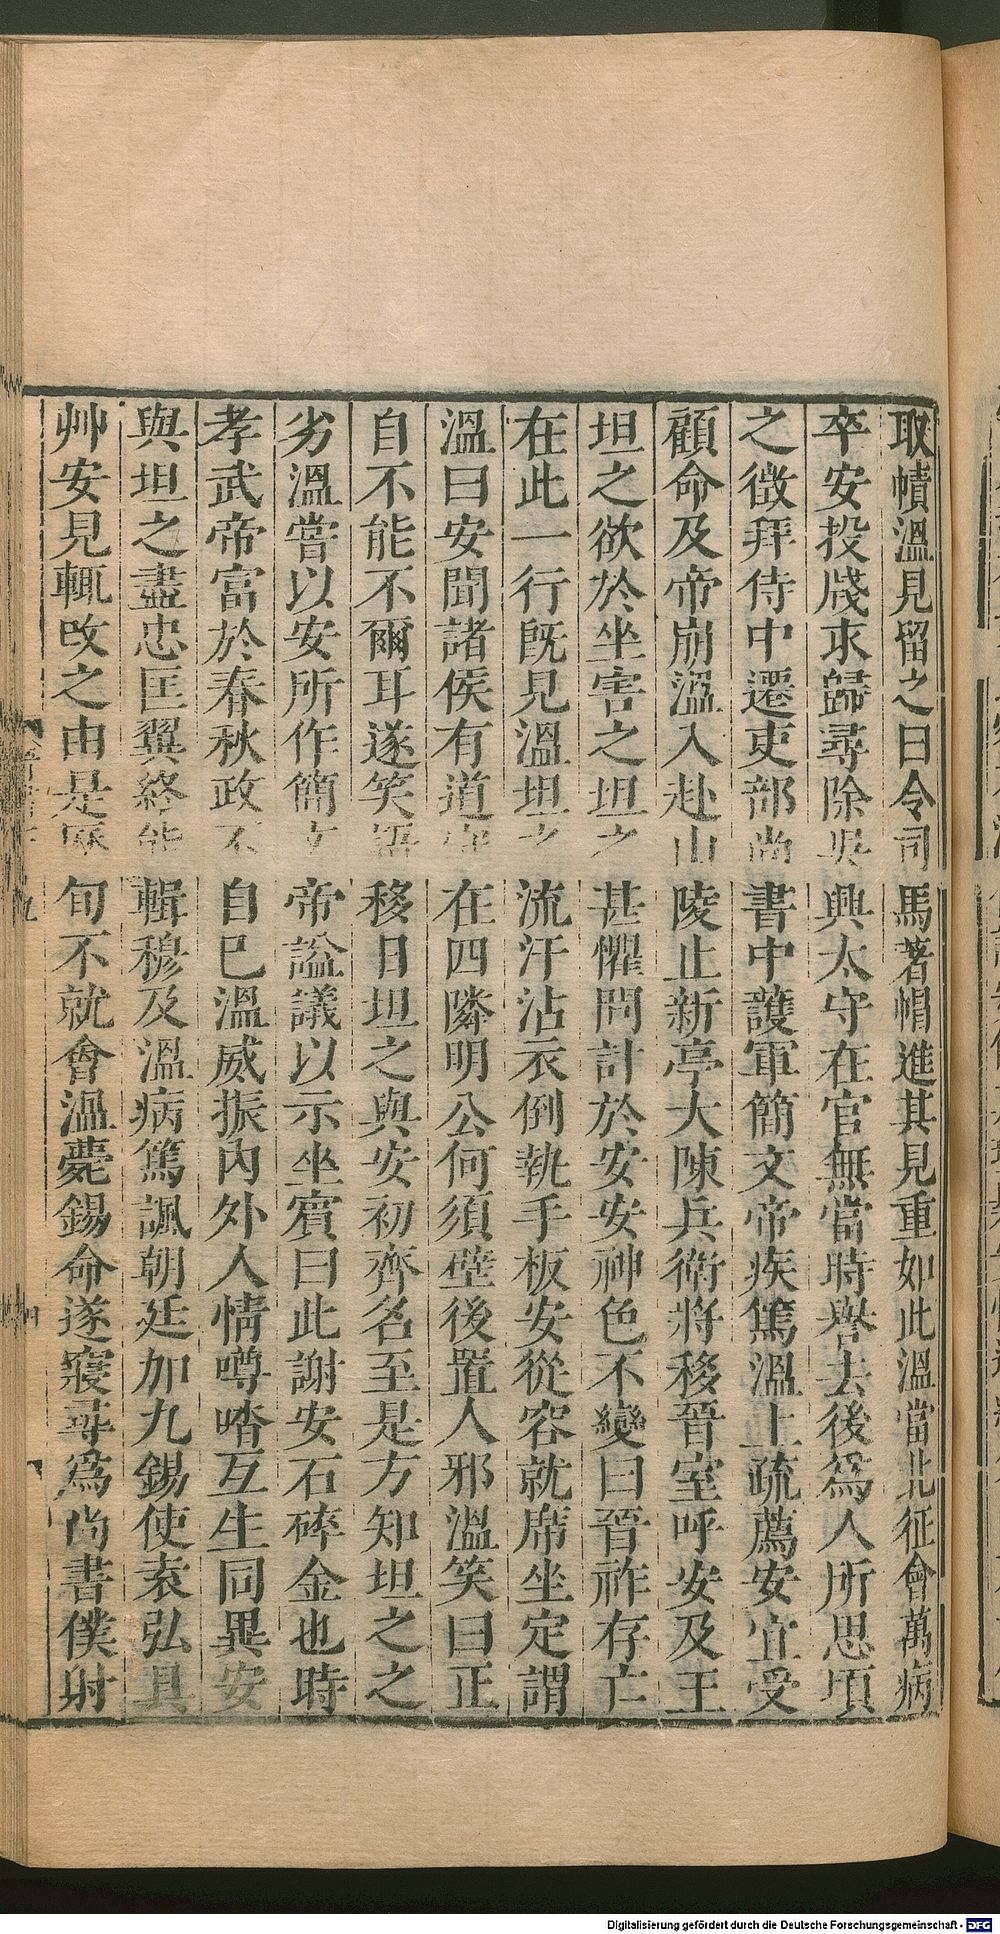 取幘溫見留之曰令司馬著帽進其見重如此溫當北征會萬病
卒安投牋求歸尋除吳興太守在官無當時譽去後為人所思頃
之徵拜侍中遷吏部尚書中護軍簡文帝疾篤溫上疏薦安宜受
顧命及帝崩溫入赴山陵止新亭大陳兵衛將移晉室呼安及王
坦之欲於坐害之坦之甚懼問計於安安神色不變曰晉祚存亡
在此一行既見溫坦之流汗沾衣倒執手板安從容就席坐定謂
溫曰安聞諸侯有道守在四隣明公何須壁後置人邪溫笑曰正
自不能不爾耳遂笑語移日坦之與安初齊名至是方知坦之之
劣溫嘗以安所作簡文帝謚議以示坐賓曰此謝安石碎金也時
孝武帝富於春秋政不自己溫威振內外人情噂喈互生同異安
與坦之盡忠匡翼終能輯穆及溫病篤諷朝廷加九錫使袁弘具
艸安見輒改之由是歷旬不就會溫薨錫命遂寢尋為尚書僕射
Digitalisierung gefördert durch die Deutsche Forschungsgemeinschaft - DFG